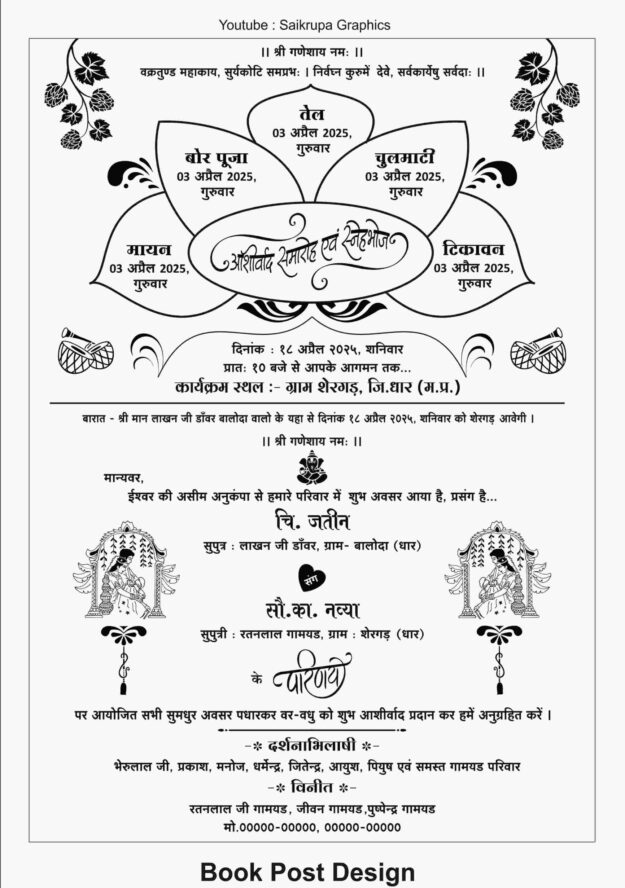 Youtube : Saikrupa Graphics
।। श्री गणेशाय नमः ।।
वक्रतुण्ड महाकाय, सुर्यकोटि समप्रभः । निर्वघ्न कुरुमें देवे, सर्वकार्येषु सर्वदाः ।।
तेल
03 अप्रैल 2025,
गुरुवार
बोर पूजा
03 अप्रैल 2025,
गुरुवार
चुलमाटी
03 अप्रैल 2025,
गुरुवार
मायन
03 अप्रैल 2025,
गुरुवार
ऑशीर्वाद समारोह एवं स्नेहभोज
टिकावन
03 अप्रैल 2025,
गुरुवार
दिनांक : १८ अप्रैल २०२५, शनिवार
प्रातः १० बजे से आपके आगमन तक...
कार्यक्रम स्थल :- ग्राम शेरगड़, जि.धार (म.प्र.)
बारात - श्री मान लाखन जी डाँवर बालोदा वालो के यहा से दिनांक १८ अप्रैल २०२५, शनिवार को शेरगड़ आवेगी ।
।। श्री गणेशाय नमः ।।
मान्यवर,
ईश्वर की असीम अनुकंपा से हमारे परिवार में शुभ अवसर आया है, प्रसंग है...
चि. जतीन
सुपुत्र : लाखन जी डाँवर, ग्राम- बालोदा (धार)
संग
सौ.का. नव्या
सुपुत्री : रतनलाल गामयड, ग्राम : शेरगड़ (धार)
के परिणयो
पर आयोजित सभी सुमधुर अवसर पधारकर वर-वधु को शुभ आशीर्वाद प्रदान कर हमें अनुग्रहित करें ।
-※ दर्शनाभिलाषी ※-
भेरुलाल जी, प्रकाश, मनोज, धर्मेन्द्र, जितेन्द्र, आयुश, पियुष एवं समस्त गामयड परिवार
-※ विनीत ※-
रतनलाल जी गामयड, जीवन गामयड,पुष्पेन्द्र गामयड
मो.00000-00000, 00000-00000
Book Post Design